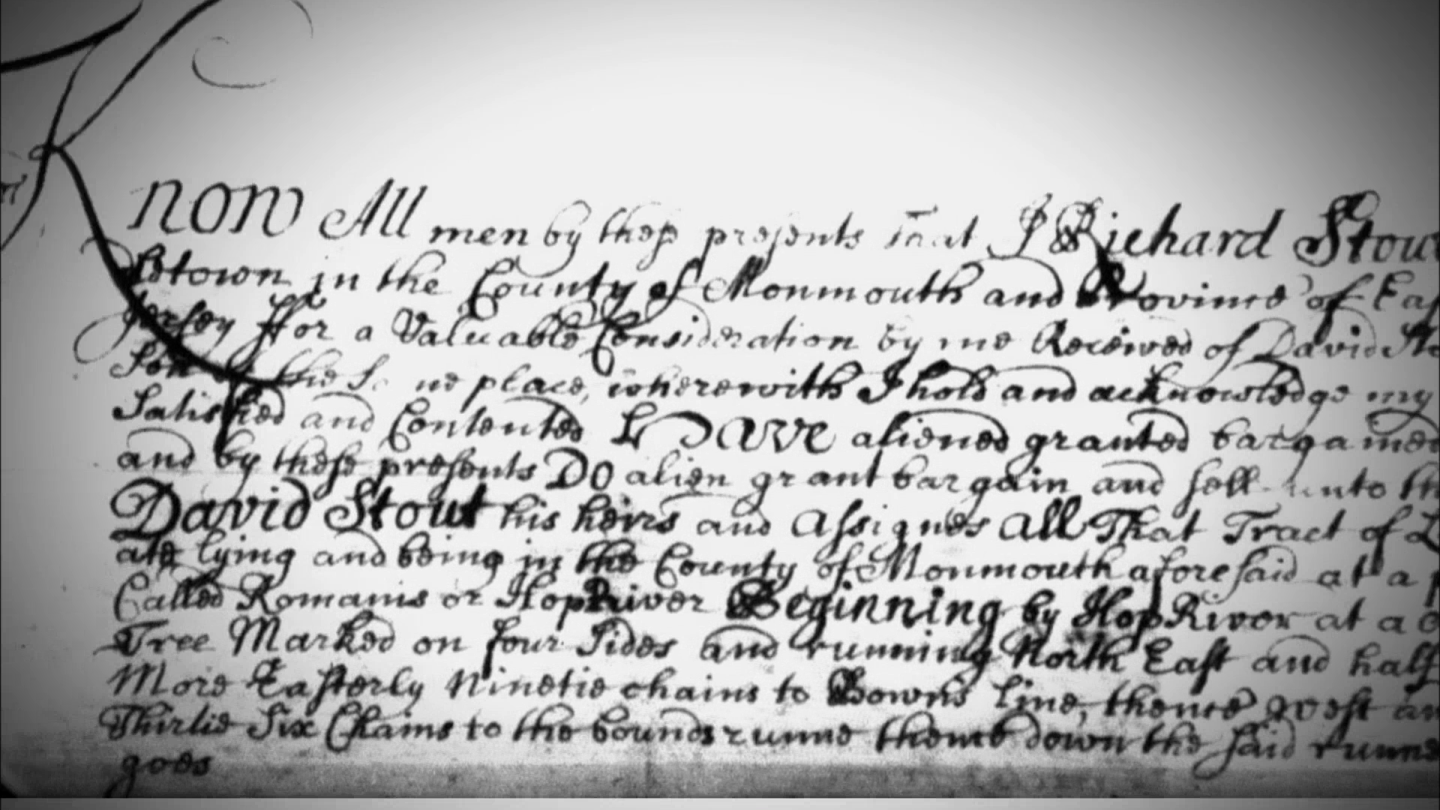 Know All men by these presents That I Richard Stou
in the County of Monmouth and Province of Eas
Jersey ffor a Valuable Consideration by me Received of David Sto
place, wherewith I hold and acknowledge my
Satisfied and Contented Have aliened granted bargained
and by these presents Do alien grant bargain and sell unto th
David Stout his heirs and Assignes All That Tract of L
lying and being in the County of Monmouth aforesaid at a p
Called Romanis or HopRiver Beginning by HopRiver at a
Tree Marked on four Sides and running North East and half
More Easterly Ninetie chains to Bowns line, thence West an
Thirtie Six Chains to the bounds runne thence down the said runne
goes